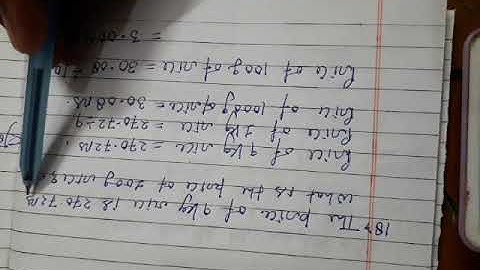 18. The price of 9 kg rice is 270.72 rs.
What is the price of 100g rice?
Price of 9 kg rice = 270.72 rs.
Price of 1 kg rice = 270.72 ÷ 9
Price of 1000g of rice = 30.08 rs.
Price of 100g of rice = 30.08 ÷ 10
= 3.00